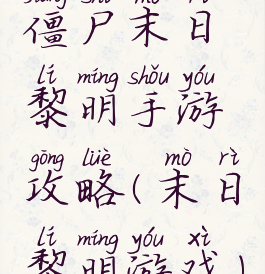 jiāng shī mò rì
僵尸末日
lí míng shǒu yóu
黎明手游
gōng lüè mò rì
攻略(末日
lí míng yóu xì
黎明游戏)